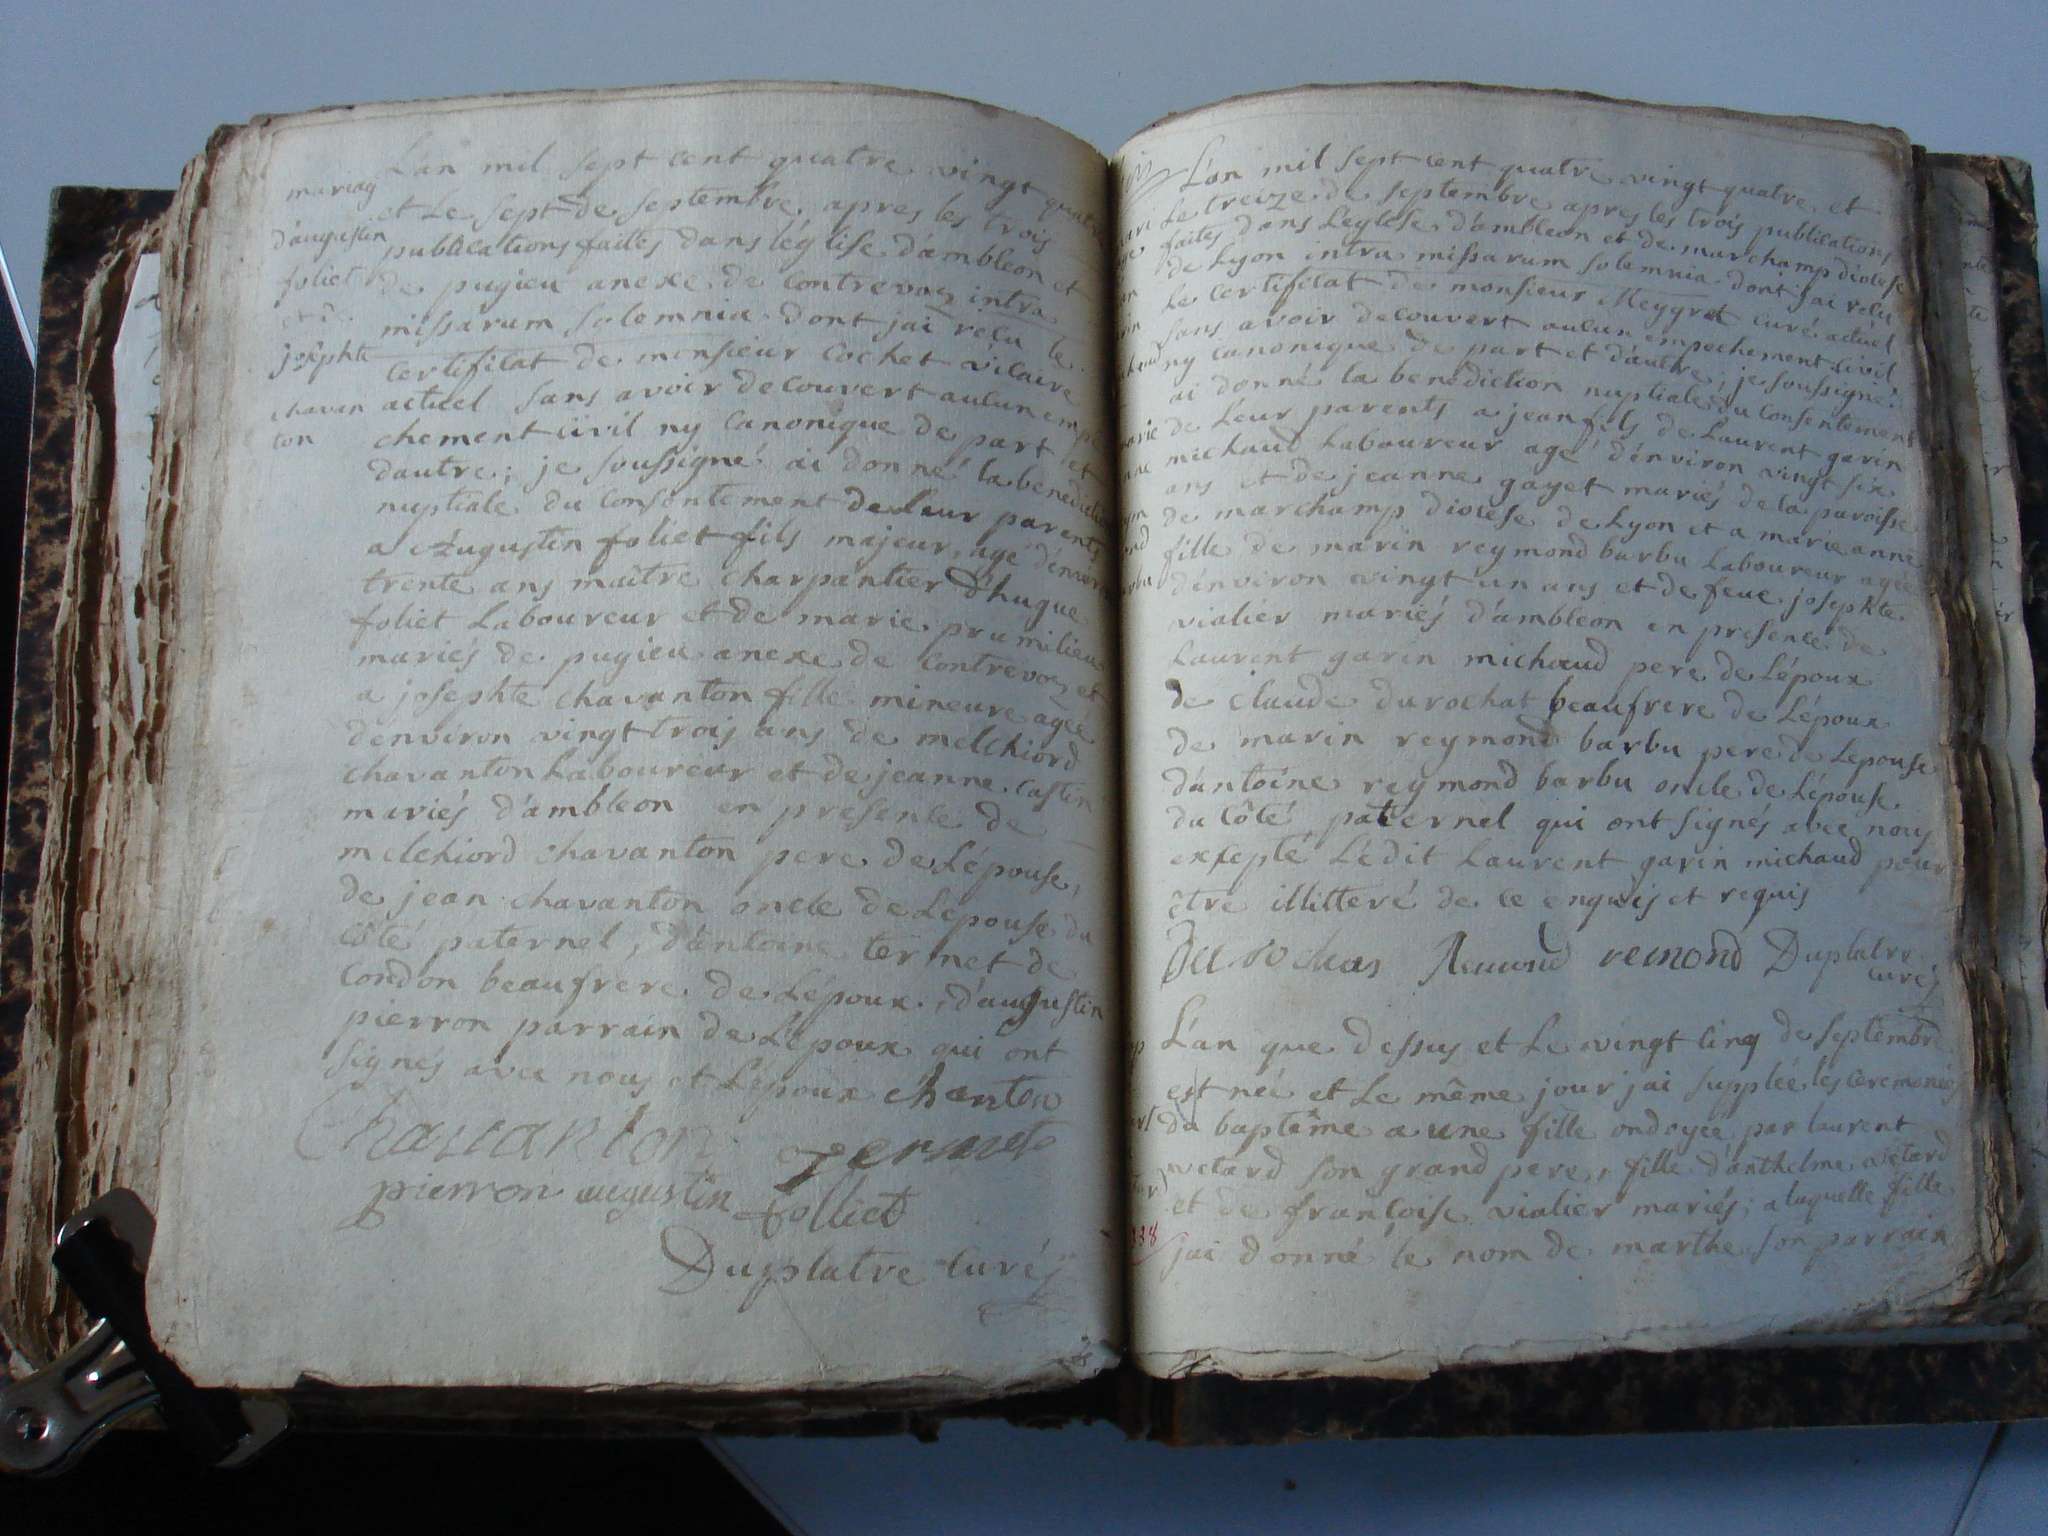 mariag
d'augustin
foliet
et de
josephte
chavan
ton
L'an mil sept cent quatre vingt quatre
et Le sept de septembre apres les trois
publications faites dans léglise d'ambleon et
de pugieu anexe de Contrevoz intra
missarum solemnia dont jai reçu le
Certificat de monsieur Cochet vicaire
actuel sans avoir decouvert aucun empe
chement civil ny Canonique de part et
dautre; je soussigné ai donné la benediction
nuptiale du Consentement de Leur parents
a Augustin foliet fils majeur, agé d'environ
trente ans maître charpantier d'hugue
foliet Laboureur et de marie prumilieu
mariés de pugieu anexe de Contrevoz et
a josephte chavanton fille mineure agée
denviron vingt trois ans de melchiord
chavanton Laboureur et de jeanne Castin
mariés d'ambleon en presence de
melchiord chavanton pere de Lépouse,
de jean chavanton oncle de Lépouse du
côté paternel, d'antoine ternet de
Condon beaufrere de Lépoux, d'augustin
pierron parrain de Lépoux qui ont
signés avec nous et Lépoux chanton
Chavanton Ternet
pierron augustin folliet
Duplatre Curé
L'an mil sept cent quatre vingt quatre, et
Le treize de septembre apres les trois publications
faites dans Leglise d'ambleon et de marchamp diocese
de Lyon intra missarum solemnia dont jai reçu
Le Certificat de monsieur Meygret Curé actuel
sans avoir decouvert aucun empechement Civil
ny Canonique de part et d'autre; je soussigné
ai donné la benediction nuptiale du Consentement
de Leur parents a jean fils de Laurent garin
michaud Laboureur agé d'environ vingt six
ans et de jeanne gayet mariés de la paroisse
de marchamp diocese de Lyon et a marie anne
fille de marin reymond barbu Laboureur agée
d'environ vingt un ans et de feue josephte
vialier mariés d'ambleon en presence de
Laurent garin michaud pere de Lépoux
de claude durochat beaufrere de Lépoux
de marin reymond barbu pere de Lepouse
d'antoine reymond barbu oncle de Lépouse
du côté paternel qui ont signés avec nous
exsepté Lédit Laurent garin michaud pour
être illitteré de ce enquis et requis
Durochat remond Duplatre
curé
338
L'an que dessus et Le vingt cinq de septembre
est née et Le même jour jai supplée les ceremonies
du baptême a une fille ondoyee par laurent
wetard son grand pere, fille d'anthelme wetard
et de françoise vialier mariés; a laquelle fille
jai donné le nom de marthe son parrain